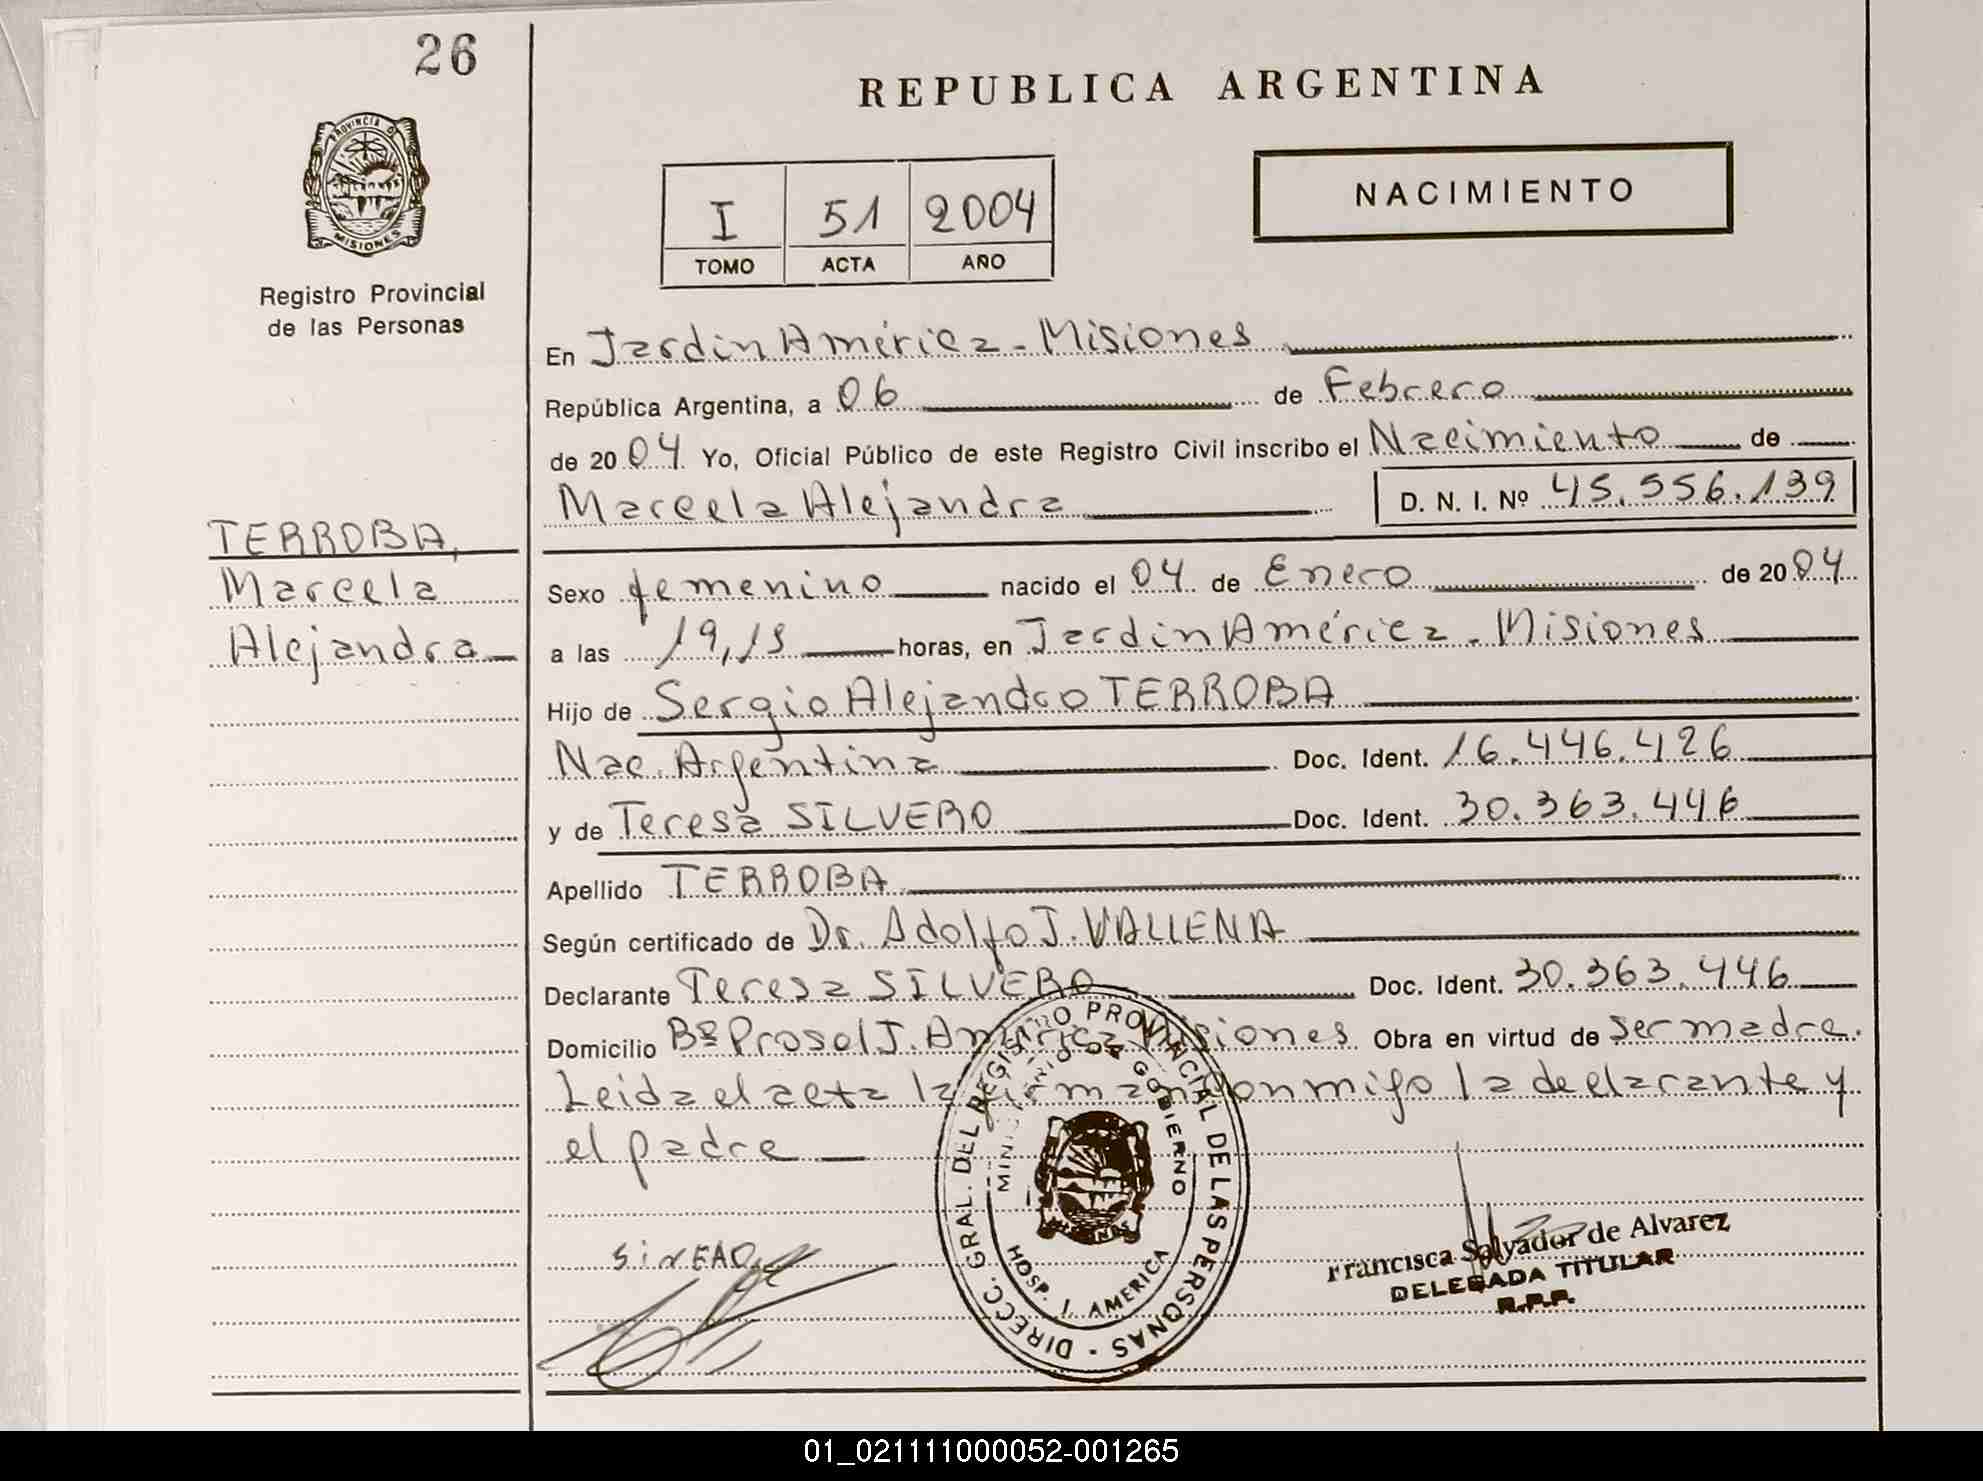 26
REPUBLICA ARGENTINA
PROVINCIA DE
MISIONES
I 51 2004
TOMO ACTA AÑO
NACIMIENTO
Registro Provincial
de las Personas
En Jardin América - Misiones
República Argentina, a 06 de Febrero
de 2004 Yo, Oficial Público de este Registro Civil inscribo el Nacimiento de
Marcela Alejandra D. N. I. Nº 45.556.139
TERROBA,
Marcela
Alejandra
Sexo femenino nacido el 04 de Enero de 2004
a las 19,15 horas, en Jardin América - Misiones
Hijo de Sergio Alejandro TERROBA
Nac. Argentina Doc. Ident. 16.446.426
y de Teresa SILVERO Doc. Ident. 30.363.446
Apellido TERROBA
Según certificado de Dr. Adolfo J. VALLENA
Declarante Teresa SILVERO Doc. Ident. 30.363.446
Domicilio Bº Prosol J. América Misiones Obra en virtud de ser madre.
Leida el acta la firman conmigo la declarante y
el padre
DIRECC. GRAL. DEL REGISTRO PROVINCIAL DE LAS PERSONAS
MINISTERIO DE GOBIERNO
HOSP. J. AMERICA
Francisca Salvador de Alvarez
DELEGADA TITULAR
R.P.P.
01_021111000052-001265